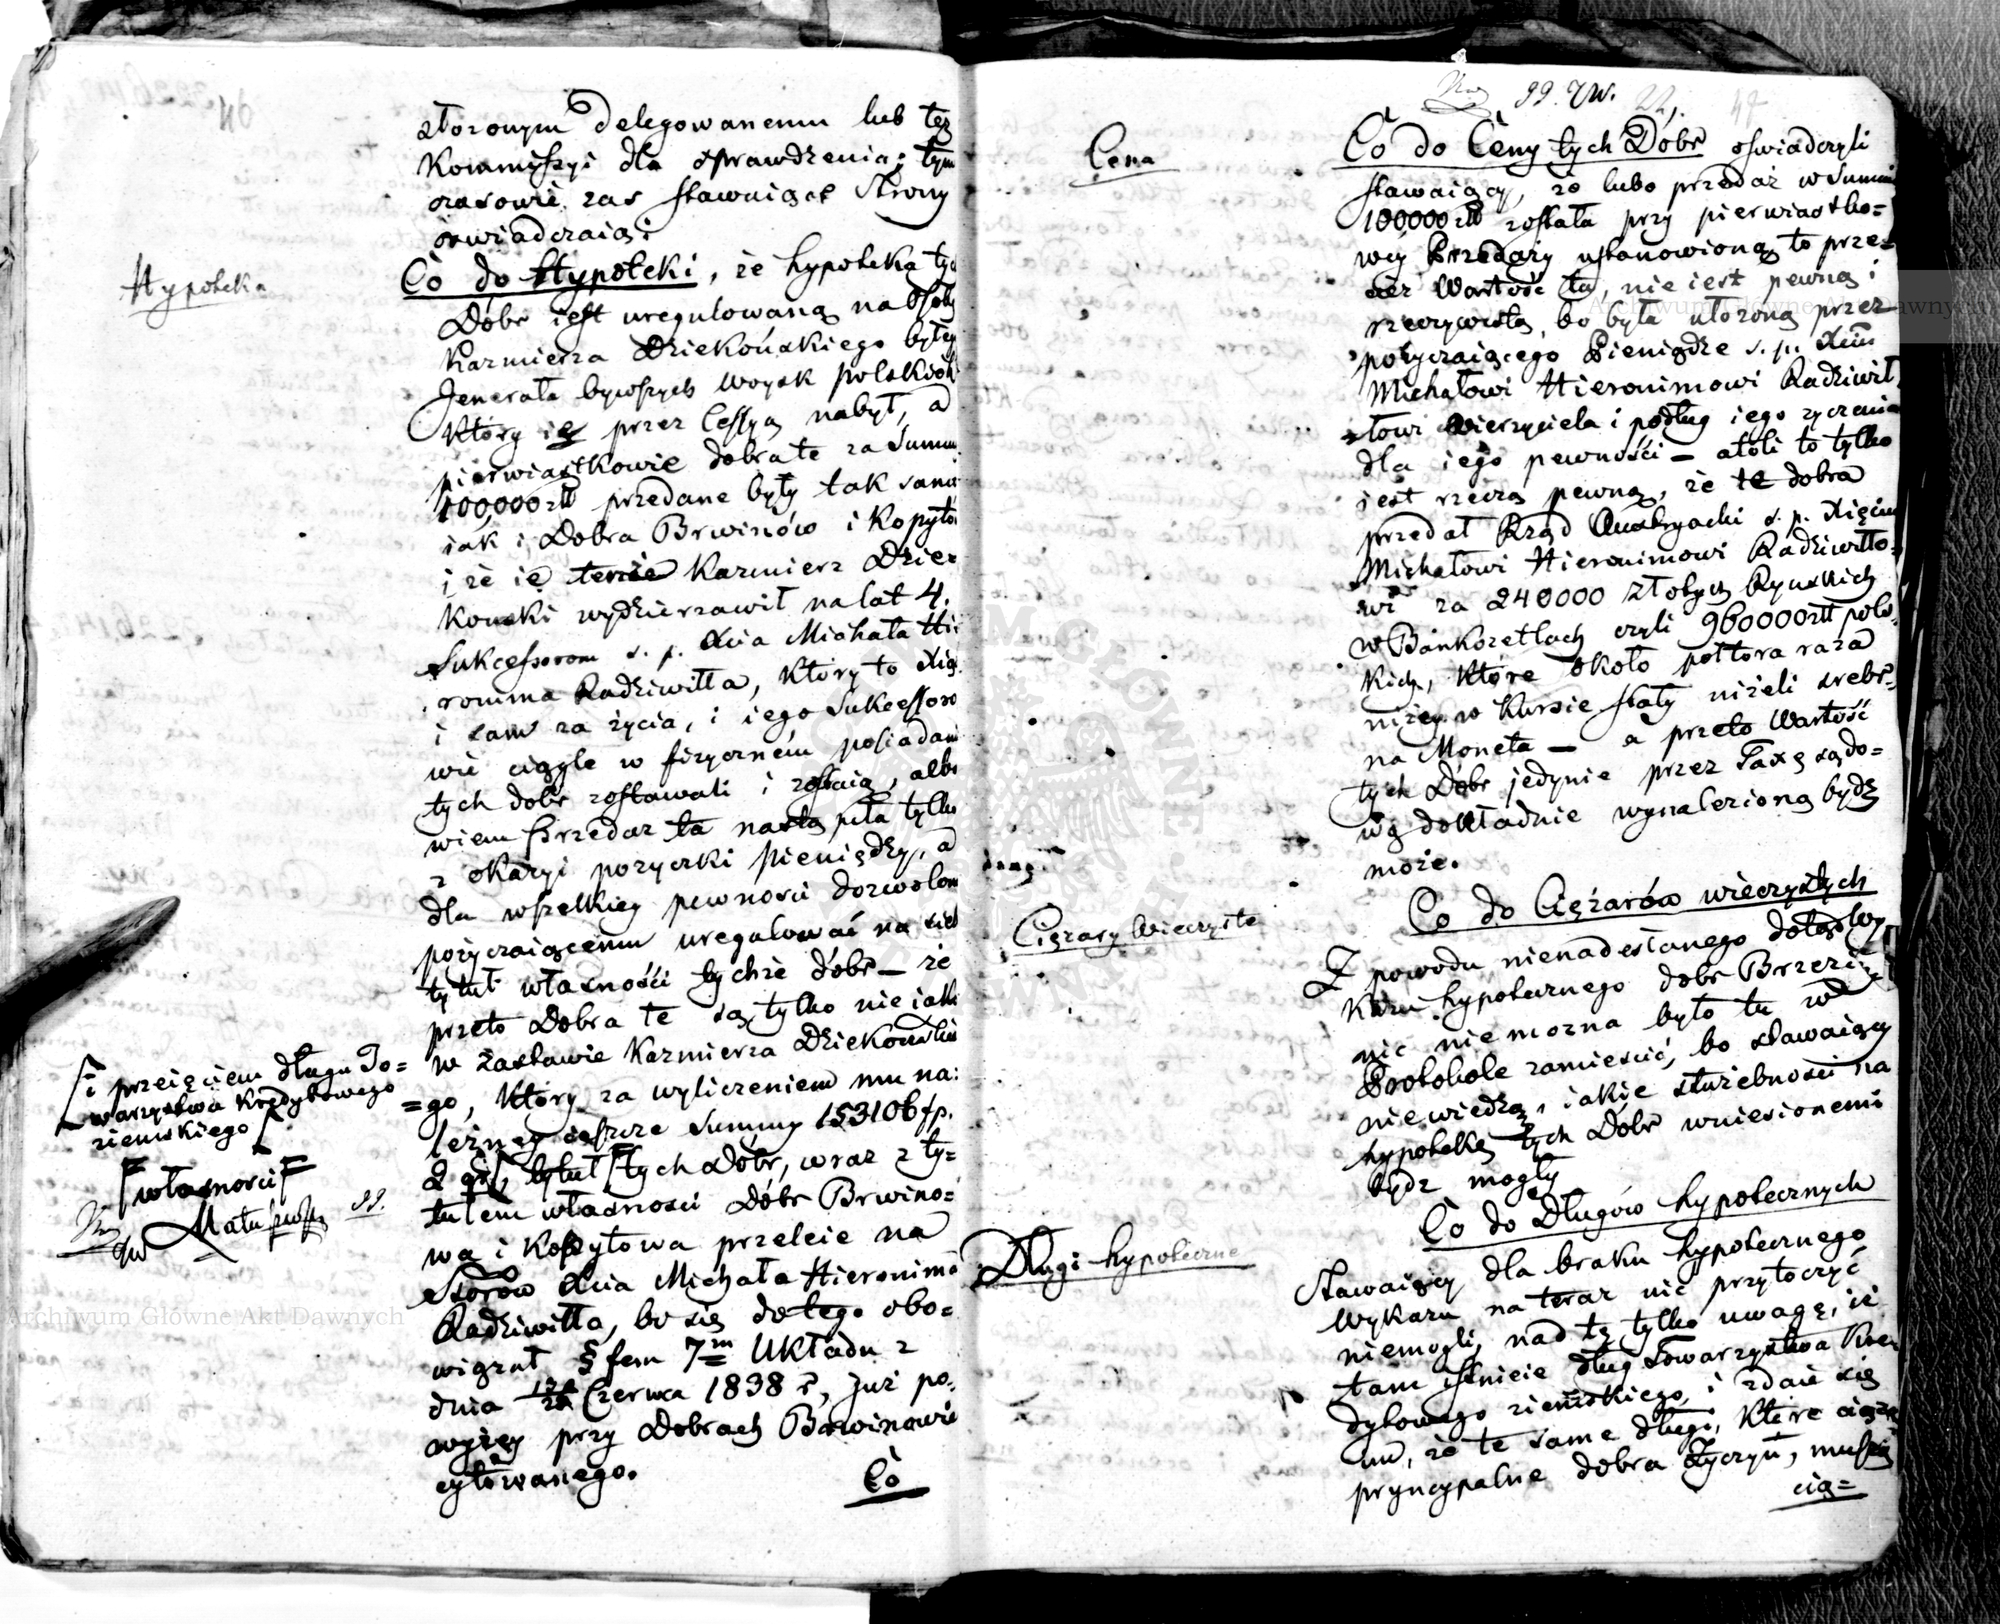 złożonym delegowanemu lub też
Kommissyi dla sprawdzenia; tym
czasowie zas stawaiące Strony
oswiadczaią:
Hypoteka
Co do Hypoteki, że hypoteka tych
Dóbr iest uregulowaną na Osobę
Kazmierza Dziekońskiego byłego
Jenerała bywszych Woysk polskich
Który ię przez Cessyą nabył, a
pierwiastkowie dobra te za Summę
100,000 zł przedane były tak samo
iak i Dobra Brwinów i Kopytów
i że ie tenże Kazmierz Dzie=
konski wydzierzawił na lat 4.
Sukcessorom s. p. Xcia Michała Hie
ronima Radziwiłła, który to Xiąże
i sam za życia, i iego Sukcessoro
wie ciągle w fizycznem posiadaniu
tych dobr zostawali i zostaią, albo
wiem przedaz ta nastąpiła tylko
z okazyi pozyczki pieniędzy, a
dla wszelkiey pewnosci dozwolono
pożyczaiącemu uregulować na siebie
tytuł własności tychże dóbr — że
przeto Dobra te są tylko nieiako
w zastawie Kazmierza Dziekońskie
=go, który za wyliczeniem mu na:
leżney ieszcze Summy 153106 fp.
2 gr[, tytuł F tych Dóbr, wraz z ty=
tułem własnosci Dóbr Brwino=
wa i Kopytowa przeleie na
Storów Xcia Michała Hieronima
Radziwiłła, bo się do tego obo=
wiązał §fem 7m Układu z
dnia Czerwca 1838 r, już po=
wyżey przy Dobrach Brwinowie
cytowanego.
Co
[i przeięciem długu To=
warzystwa Kredytowego
ziemskiego [.
F własnosci F
Matuszewski
99.
99. 7W. 22. 47
Cena
Co do Ceny tych Dóbr oswiadczyli
stawaiący, że lubo przedaż w Summie
100000 zł została przy pierwiastko=
wey Przedaży ustanowioną, to prze=
cież Wartość ta, nie iest pewną i
rzeczywistą, bo była ułożoną przez
pożyczaiącego Pieniądze s. p. Xciu
Michałowi Hieronimowi Radziwił
=łowi Wierzyciela i podług iego życzenia
dla iego pewności — atoli to tylko
iest rzeczą pewną, że te dobra
przedał Rząd Austryacki s. p. Xięciu
Michałowi Hieronimowi Radziwiłło=
wi za 240000 złotych Rynskich
w Bankozetlach czyli 960000 zł pols=
kich, które około połtora raza
niżey w kursie stały niżeli srebr=
na Moneta — a przeto Wartość
tych Dobr jedynie przez Taxę sądo=
wą dokładnie wynalezioną bydź
może.
Ciężary Wieczyste
Co do Ciężarów wieczystych
Z powodu nienadesłanego dotąd Wy
kazu hypotecznego dobr
nic nie mozna było tu w
Protokole zamieścić, bo stawaiący
niewiedzą, iakie służebności na
hypotekę tych Dóbr wniesionemi
bydz mogły
Długi hypoteczne
Co do Długów hypotecznych
Stawaiący dla braku hypotecznego
Wykazu na teraz nic przytoczyć
niemogli, nad tę tylko uwagę, iż
tam istnieie dług Towarzystwa Kre
dytowego ziemskiego i zdaie się
im, że te same długi, które ciążą
pryncypalne dobra Życzyń, muszą
cią=
Archiwum Główne Akt Dawnych
Archiwum Główne Akt Dawnych